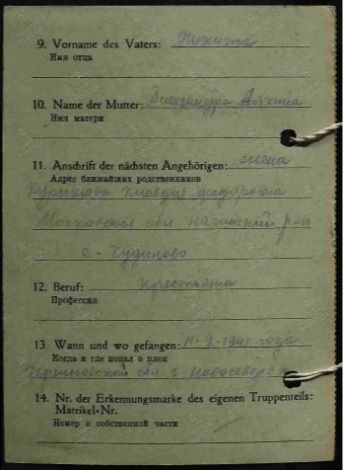 9. Vorname des Vaters: Никита
Имя отца
10. Name der Mutter: Александра
Имя матери
11. Anschrift der nächsten Angehörigen: жена
Адрес ближайших родственников
Клавдия Федоровна
Московская обл Ногинский р-н
с. Кудиново
12. Beruf: крестьянин
Профессия
13 Wann und wo gefangen: 11-9-1941 года
Когда и где попал в плен
Черниговской обл г.
14. Nr. der Erkennungsmarke des eigenen Truppenteils:
Matrikel-Nr.
Номер в собственной части